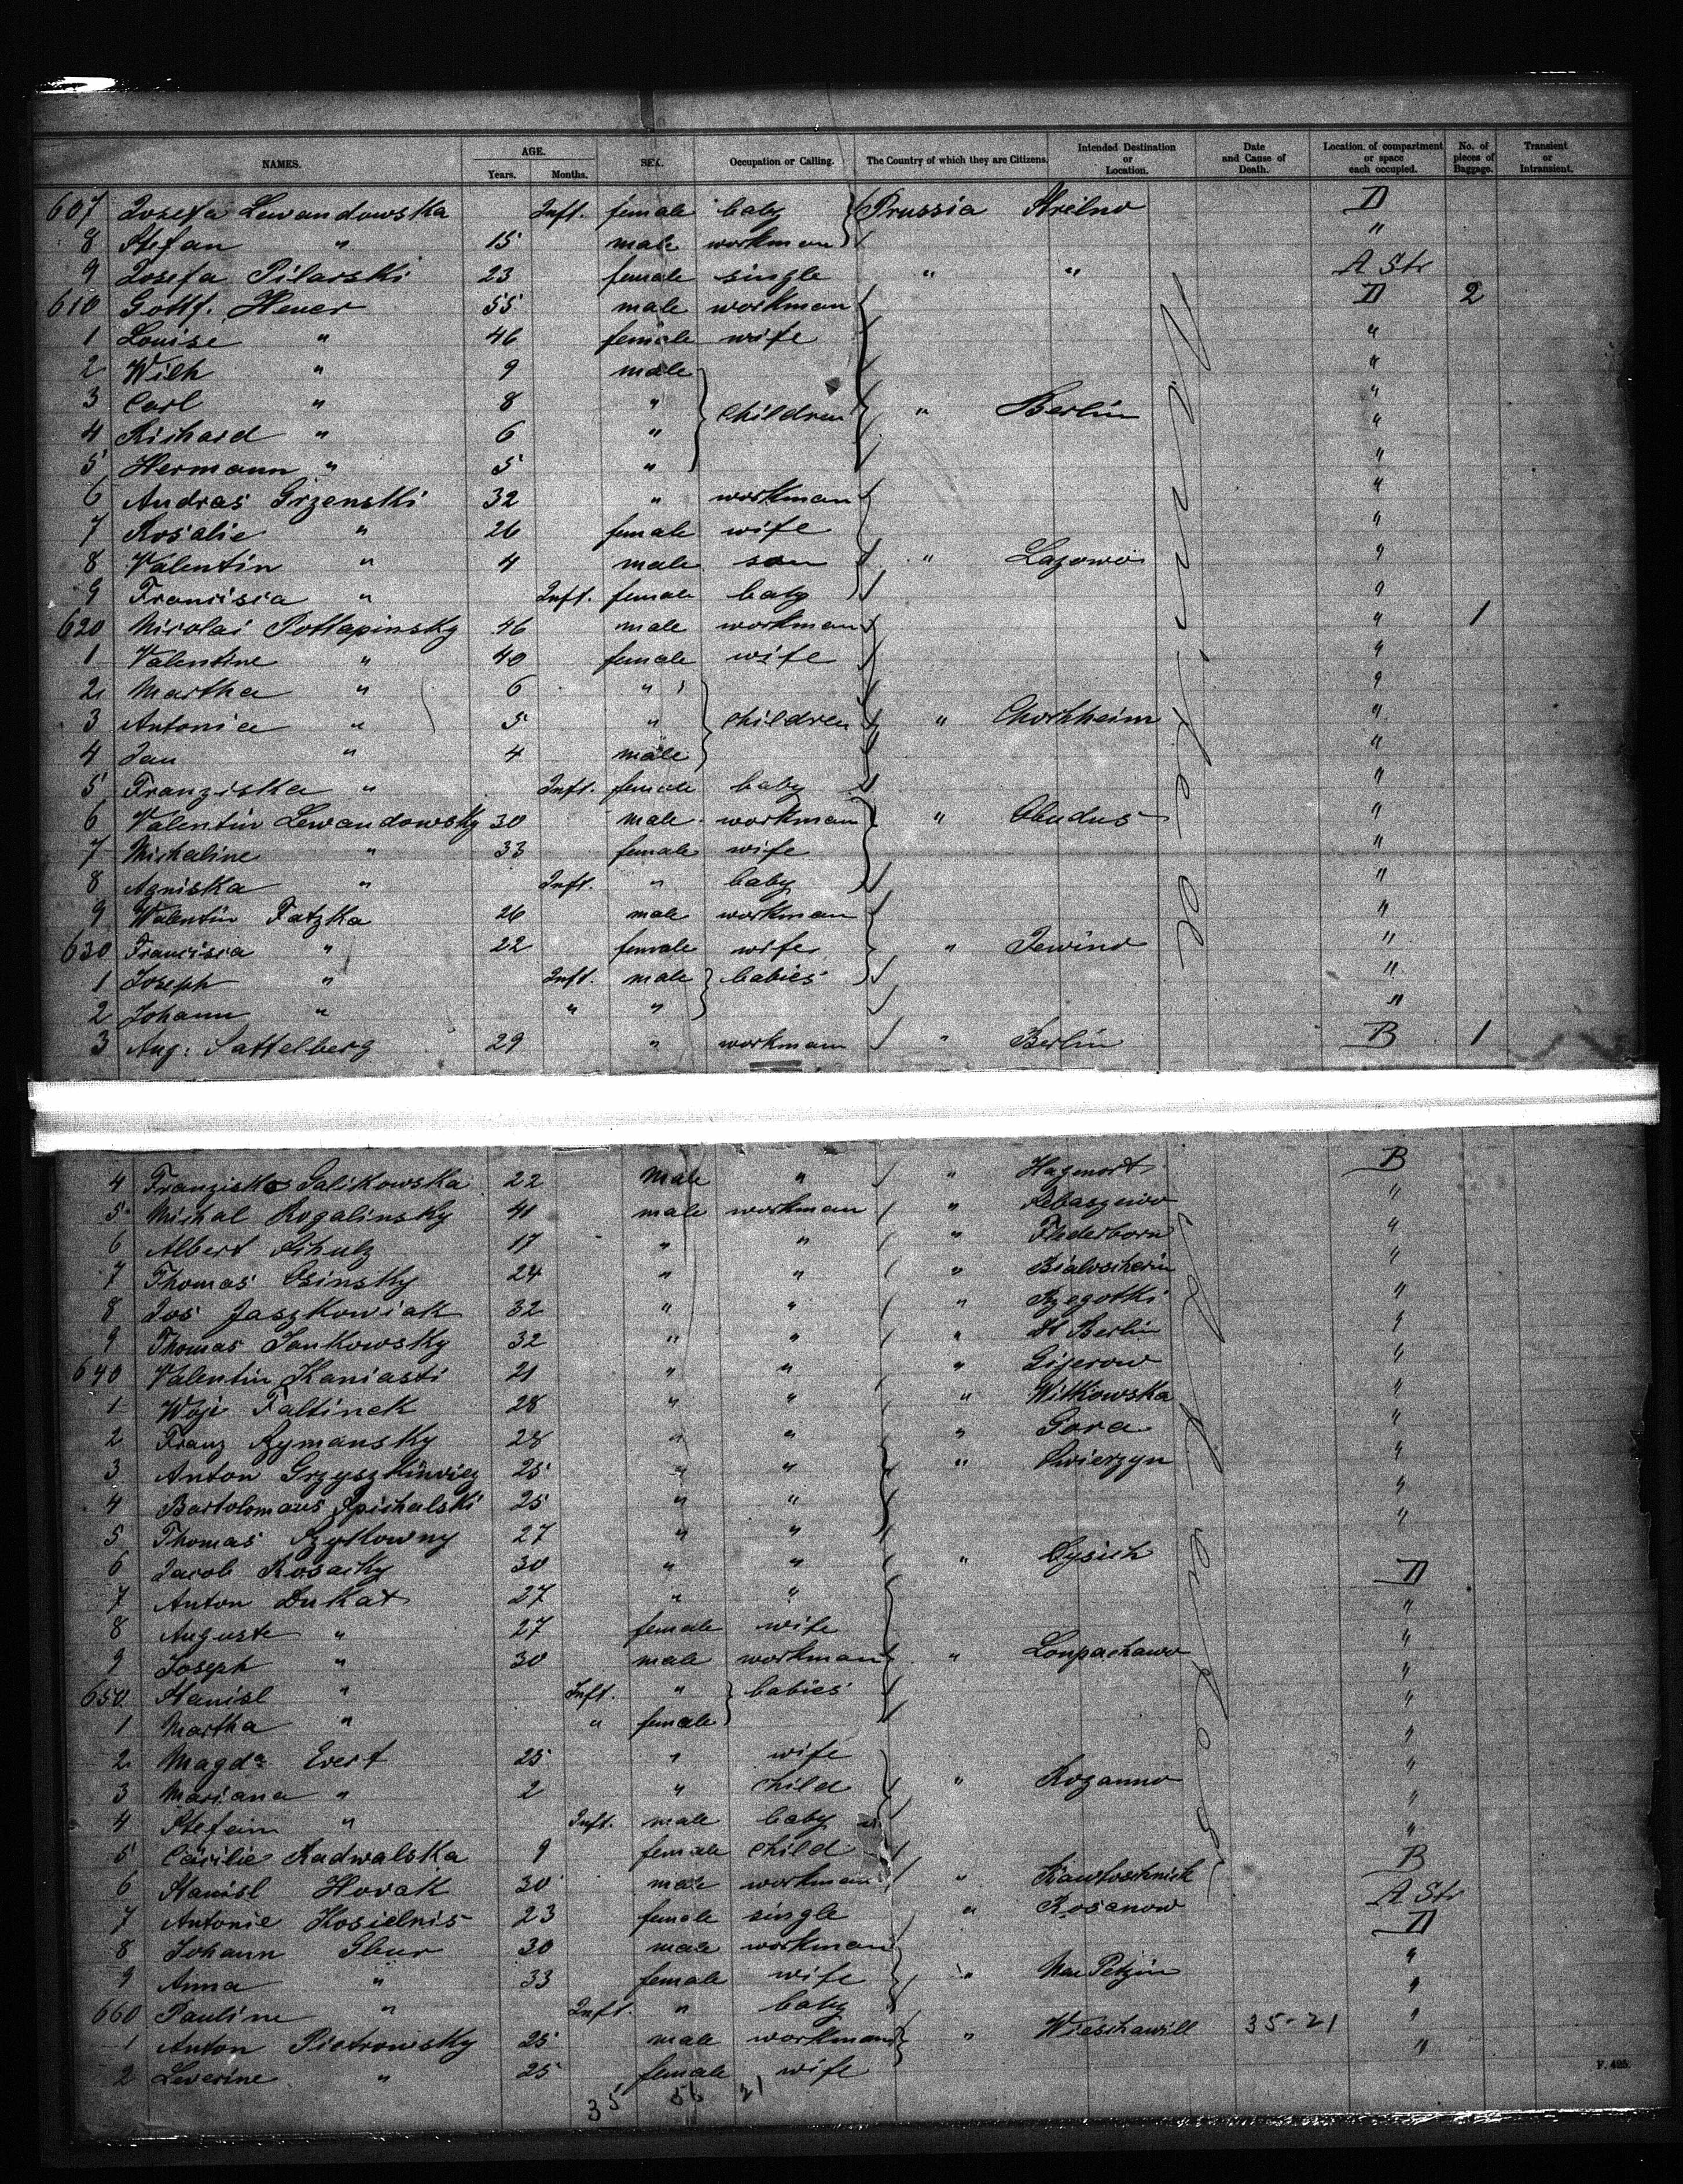 NAMES. AGE. Years. Months. SEX. Occupation or Calling. The Country of which they are Citizens. Intended Destination or Location. Date and Cause of Death. Location of compartment or space each occupied. No. of pieces of Baggage. Transient or Intransient.
607 Josefa Lewandowska Inft. female baby Prussia D
8 Stefan " 15 male workman "
9 Josefa Pilarski 23 female single " " A Str
610 Gottf. Heuer 55 male workman D 2
1 Louise " 46 female wife "
2 Wilh " 9 male "
3 Carl " 8 " children " Berlin "
4 Richard " 6 " "
5 Hermann " 5 " "
6 Andras Grzenski 32 " workman "
7 Rosalie " 26 female wife "
8 Valentin " 4 male son " Lazowo "
9 Francisia " Inft. female baby "
620 Nicolai Pottapinsky 46 male workman " 1
1 Valentine " 40 female wife "
2 Martha " 6 " "
3 Antonia " 5 " children " "
4 Jan " 4 male "
5 Franziska " Inft. female baby "
6 Valentin Lewandowsky 30 male workman " "
7 Michaline " 33 female wife "
8 Agniska " Inft. " baby "
9 Valentin Fatzka 26 male workman "
630 Francisia " 22 female wife " Jewino "
1 Joseph " Inft. male babies "
2 Johann " " " "
3 Aug. Sattelberg 29 " workman " Berlin B 1
4 Franziska Salikowska 22 male " " B
5 Michal Rogalinsky 41 male workman " "
6 Albert Schulz 17 " " " Flederborn "
7 Thomas Osinsky 24 " " " "
8 Jos Jaszkowiak 32 " " " "
9 Thomas Jankowsky 32 " " " Berlin "
640 Valentin Kaniasti 21 " " " "
1 Woje Faltinek 28 " " " Witkowska "
2 Franz Rymansky 28 " " " Gora "
3 Anton Grzyszkiewicz 25 " " " "
4 Bartolomaus Spichalski 25 " " "
5 Thomas 27 " " "
6 Jacob Kosacky 30 " " " D
7 Anton Dukat 27 " " "
8 Auguste " 27 female wife "
9 Joseph " 30 male workman " Loupachawo "
650 Stanisl " Inft. " babies "
1 Martha " " female "
2 Magda Evert 25 " wife "
3 Mariana " 2 " child " "
4 Stefan " Inft. male baby "
5 Cäcilie Radwalska 9 female child B
6 Stanisl Hovak 30 male workman " A Str
7 Antonie Kosielnis 23 female single " Rosanow D
8 Johann Gleur 30 male workman "
9 Anna " 33 female wife " "
660 Pauline " Inft. " baby "
1 Anton Pietrowsky 25 male workman " Wieschawill 35-21 "
2 Leverine " 25 female wife
35 56 21
F. 425.